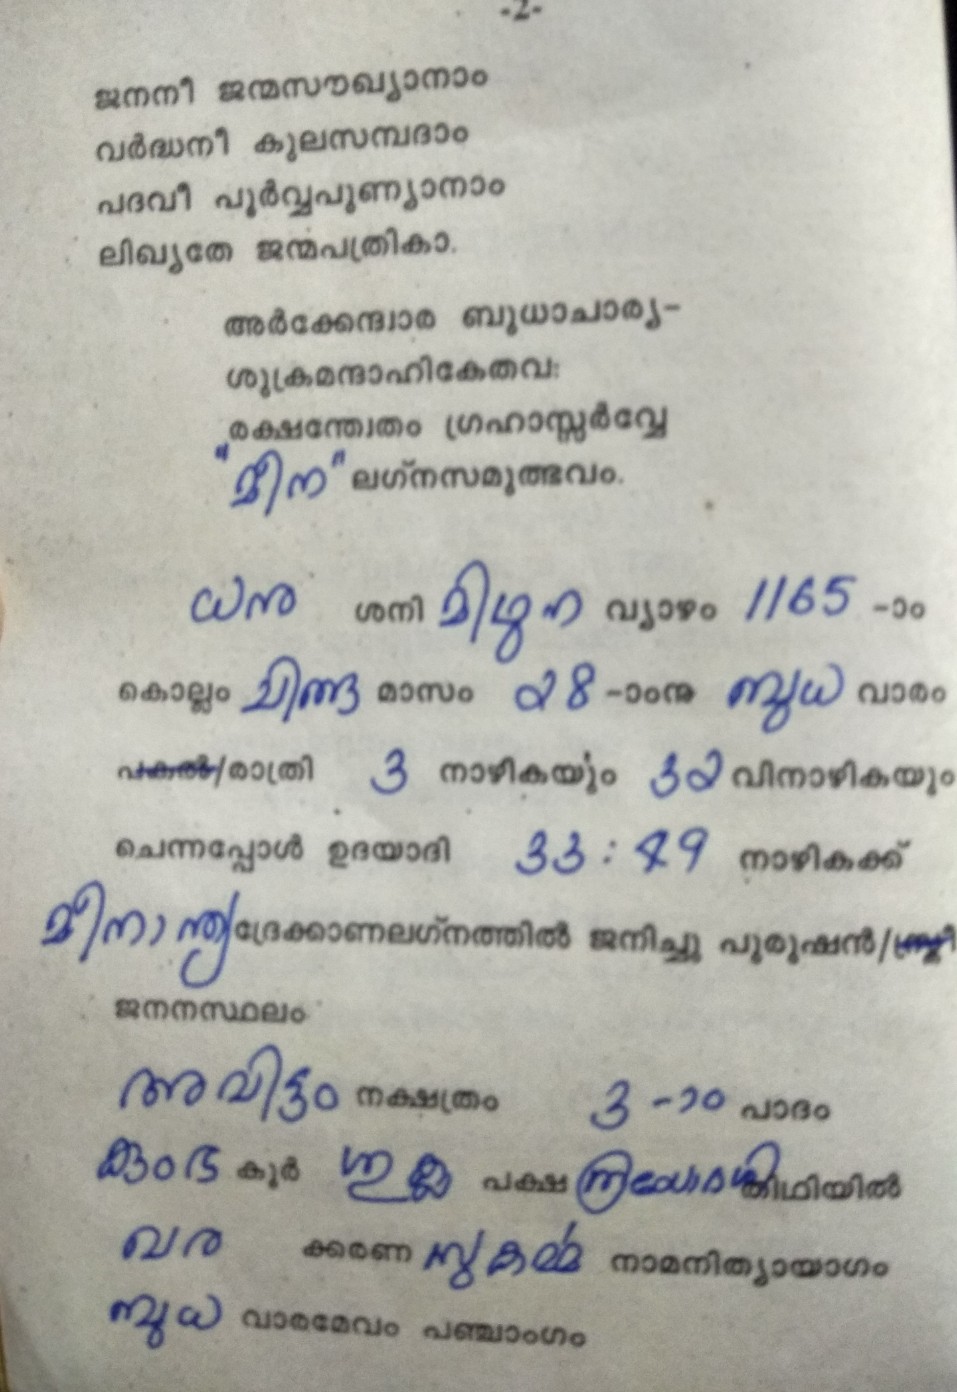 -2-
ജനനീ ജന്മസൗഖ്യാനാം
വർദ്ധനീ കുലസമ്പദാം
പദവീ പൂർവ്വപുണ്യാനാം
ലിഖ്യതേ ജന്മപത്രികാ.
അർക്കേന്ദ്വാര ബുധാചാര്യ-
ശുക്രമന്ദാഹികേതവഃ
രക്ഷന്ത്വേതം ഗ്രഹാസ്സർവ്വേ
"മീന" ലഗ്നസമുത്ഭവം.
ധനു ശനി മിഥുന വ്യാഴം 1165 -ാം
കൊല്ലം ചിങ്ങ മാസം 28 -ാംനു ബുധ വാരം
പകൽ/രാത്രി 3 നാഴികയും 32 വിനാഴികയും
ചെന്നപ്പോൾ ഉദയാദി 33:49 നാഴികക്ക്
മീനാന്ത്യ ദ്രേക്കാണലഗ്നത്തിൽ ജനിച്ചു പുരുഷൻ/സ്ത്രീ
ജനനസ്ഥലം
അവിട്ടം നക്ഷത്രം 3 -ാം പാദം
കുംഭ കൂർ ശുക്ല പക്ഷ ത്രയോദശി തിഥിയിൽ
ഖര ക്കരണ സുകർമ്മ നാമനിത്യായാഗം
ബുധ വാരമേവം പഞ്ചാംഗം